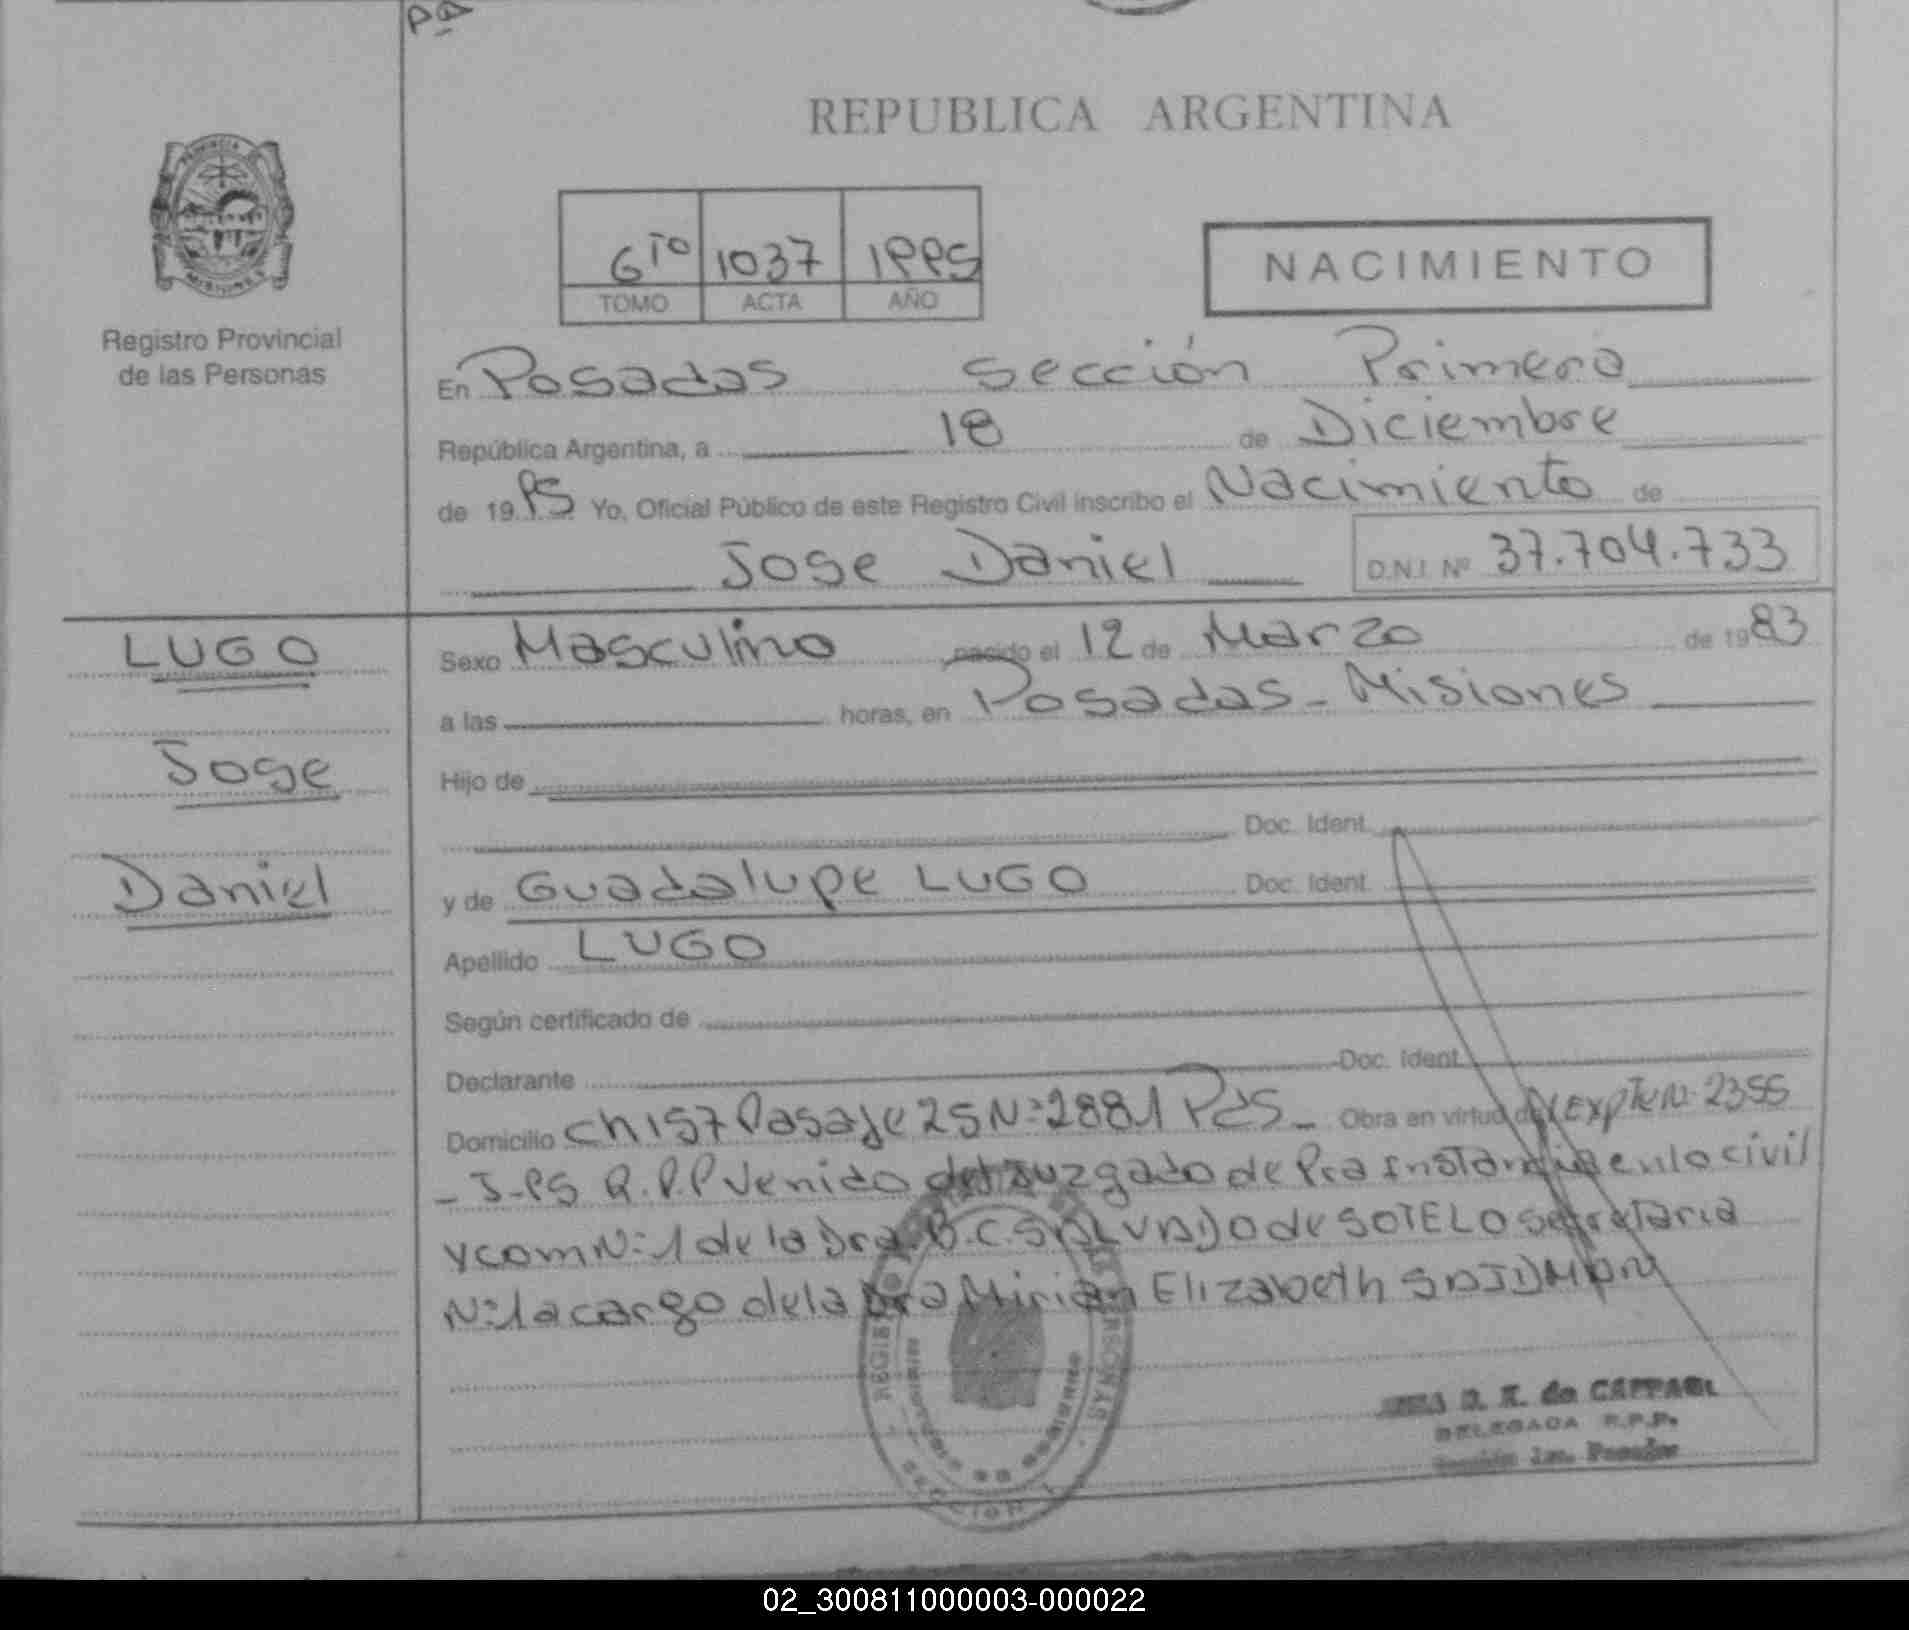 REPUBLICA ARGENTINA
6to 1037 1995
TOMO ACTA AÑO
NACIMIENTO
Registro Provincial
de las Personas
En Posadas sección Primera
República Argentina, a 18 de Diciembre
de 1995 Yo, Oficial Público de este Registro Civil inscribo el Nacimiento de
Jose Daniel D.N.I. Nº 37.704.733
LUGO
Jose
Daniel
Sexo Masculino nacido el 12 de Marzo de 1983
a las horas, en Posadas - Misiones
Hijo de
Doc. Ident.
y de Guadalupe LUGO Doc. Ident.
Apellido LUGO
Según certificado de
Declarante Doc. Ident.
Domicilio ch 157 Pasaje 25 Nº 2881 Pds - Obra en virtud del Expte Nº 2355
- J-95 R.P.P venido del Juzgado de Pra Instancia en lo civil
y com Nº 1 de la Dra. B.C. de SOTELO secretaria
Nº 1 a cargo de la Dra Mirian Elizabeth
REGISTRO PERSONAS
SECCION 1
D. K. de
DELEGADA R.P.P.
Sección 1ra. Posadas
02_300811000003-000022